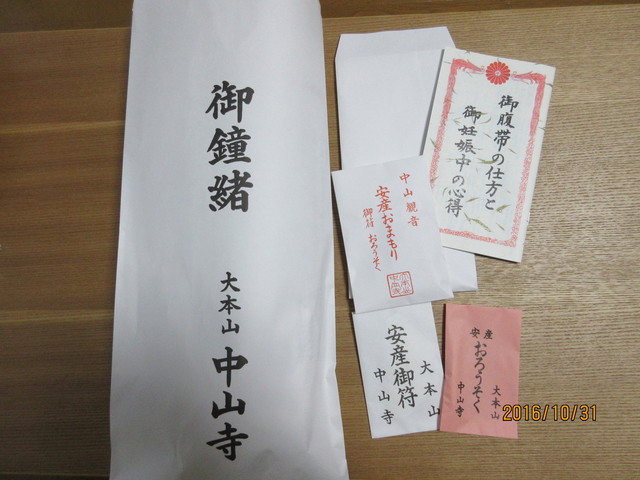 御鐘緒
大本山 中山寺
御腹帯の仕方と
御妊娠中の心得
中山観音
安産おまもり
御符 おろうそく
大本山
安産御符
中山寺
大本山
安産おろうそく
中山寺
2016/10/31